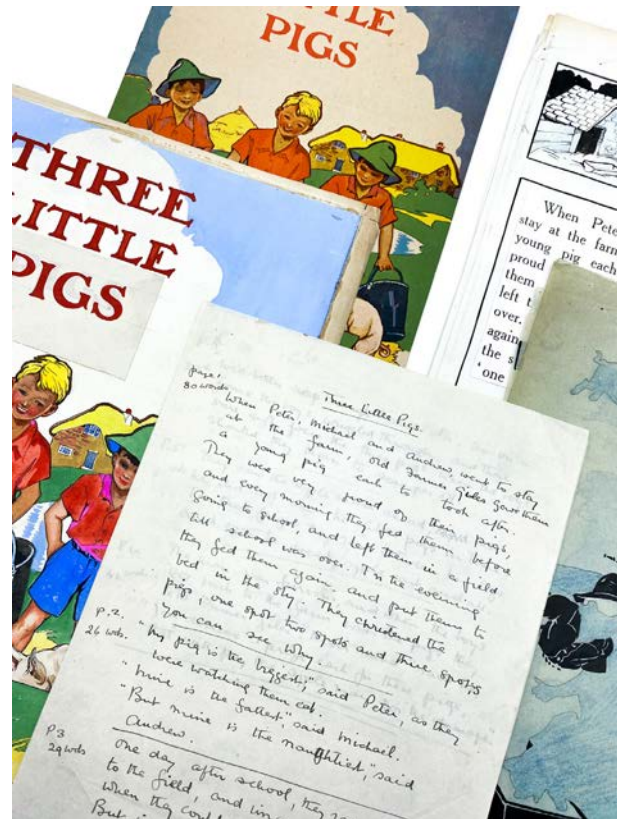 TLE
PIGS
THREE
LITTLE
PIGS
When Pete
stay at the farm
young pig each
proud
them
left t
over.
again
the s
'one
page 1
80 words
Three Little Pigs.
When Peter, Michael and Andrew, went to stay
at the farm, old Farmer Giles gave them
a young pig each to look after.
They were very proud of their pigs,
and every morning they fed them before
going to school, and left them in a field
till school was over. In the evening
they fed them again and put them to
bed in the sty. They christened the
pigs, one spot two spots and three spots,
You can see why.
p. 2.
26 wds.
"My pig is the biggest," said Peter, as they
were watching them eat.
"mine is the fattest," said michael.
"But mine is the naughtiest," said
Andrew.
P3
29 wds
One day after school, they
to the field, and
when they
But